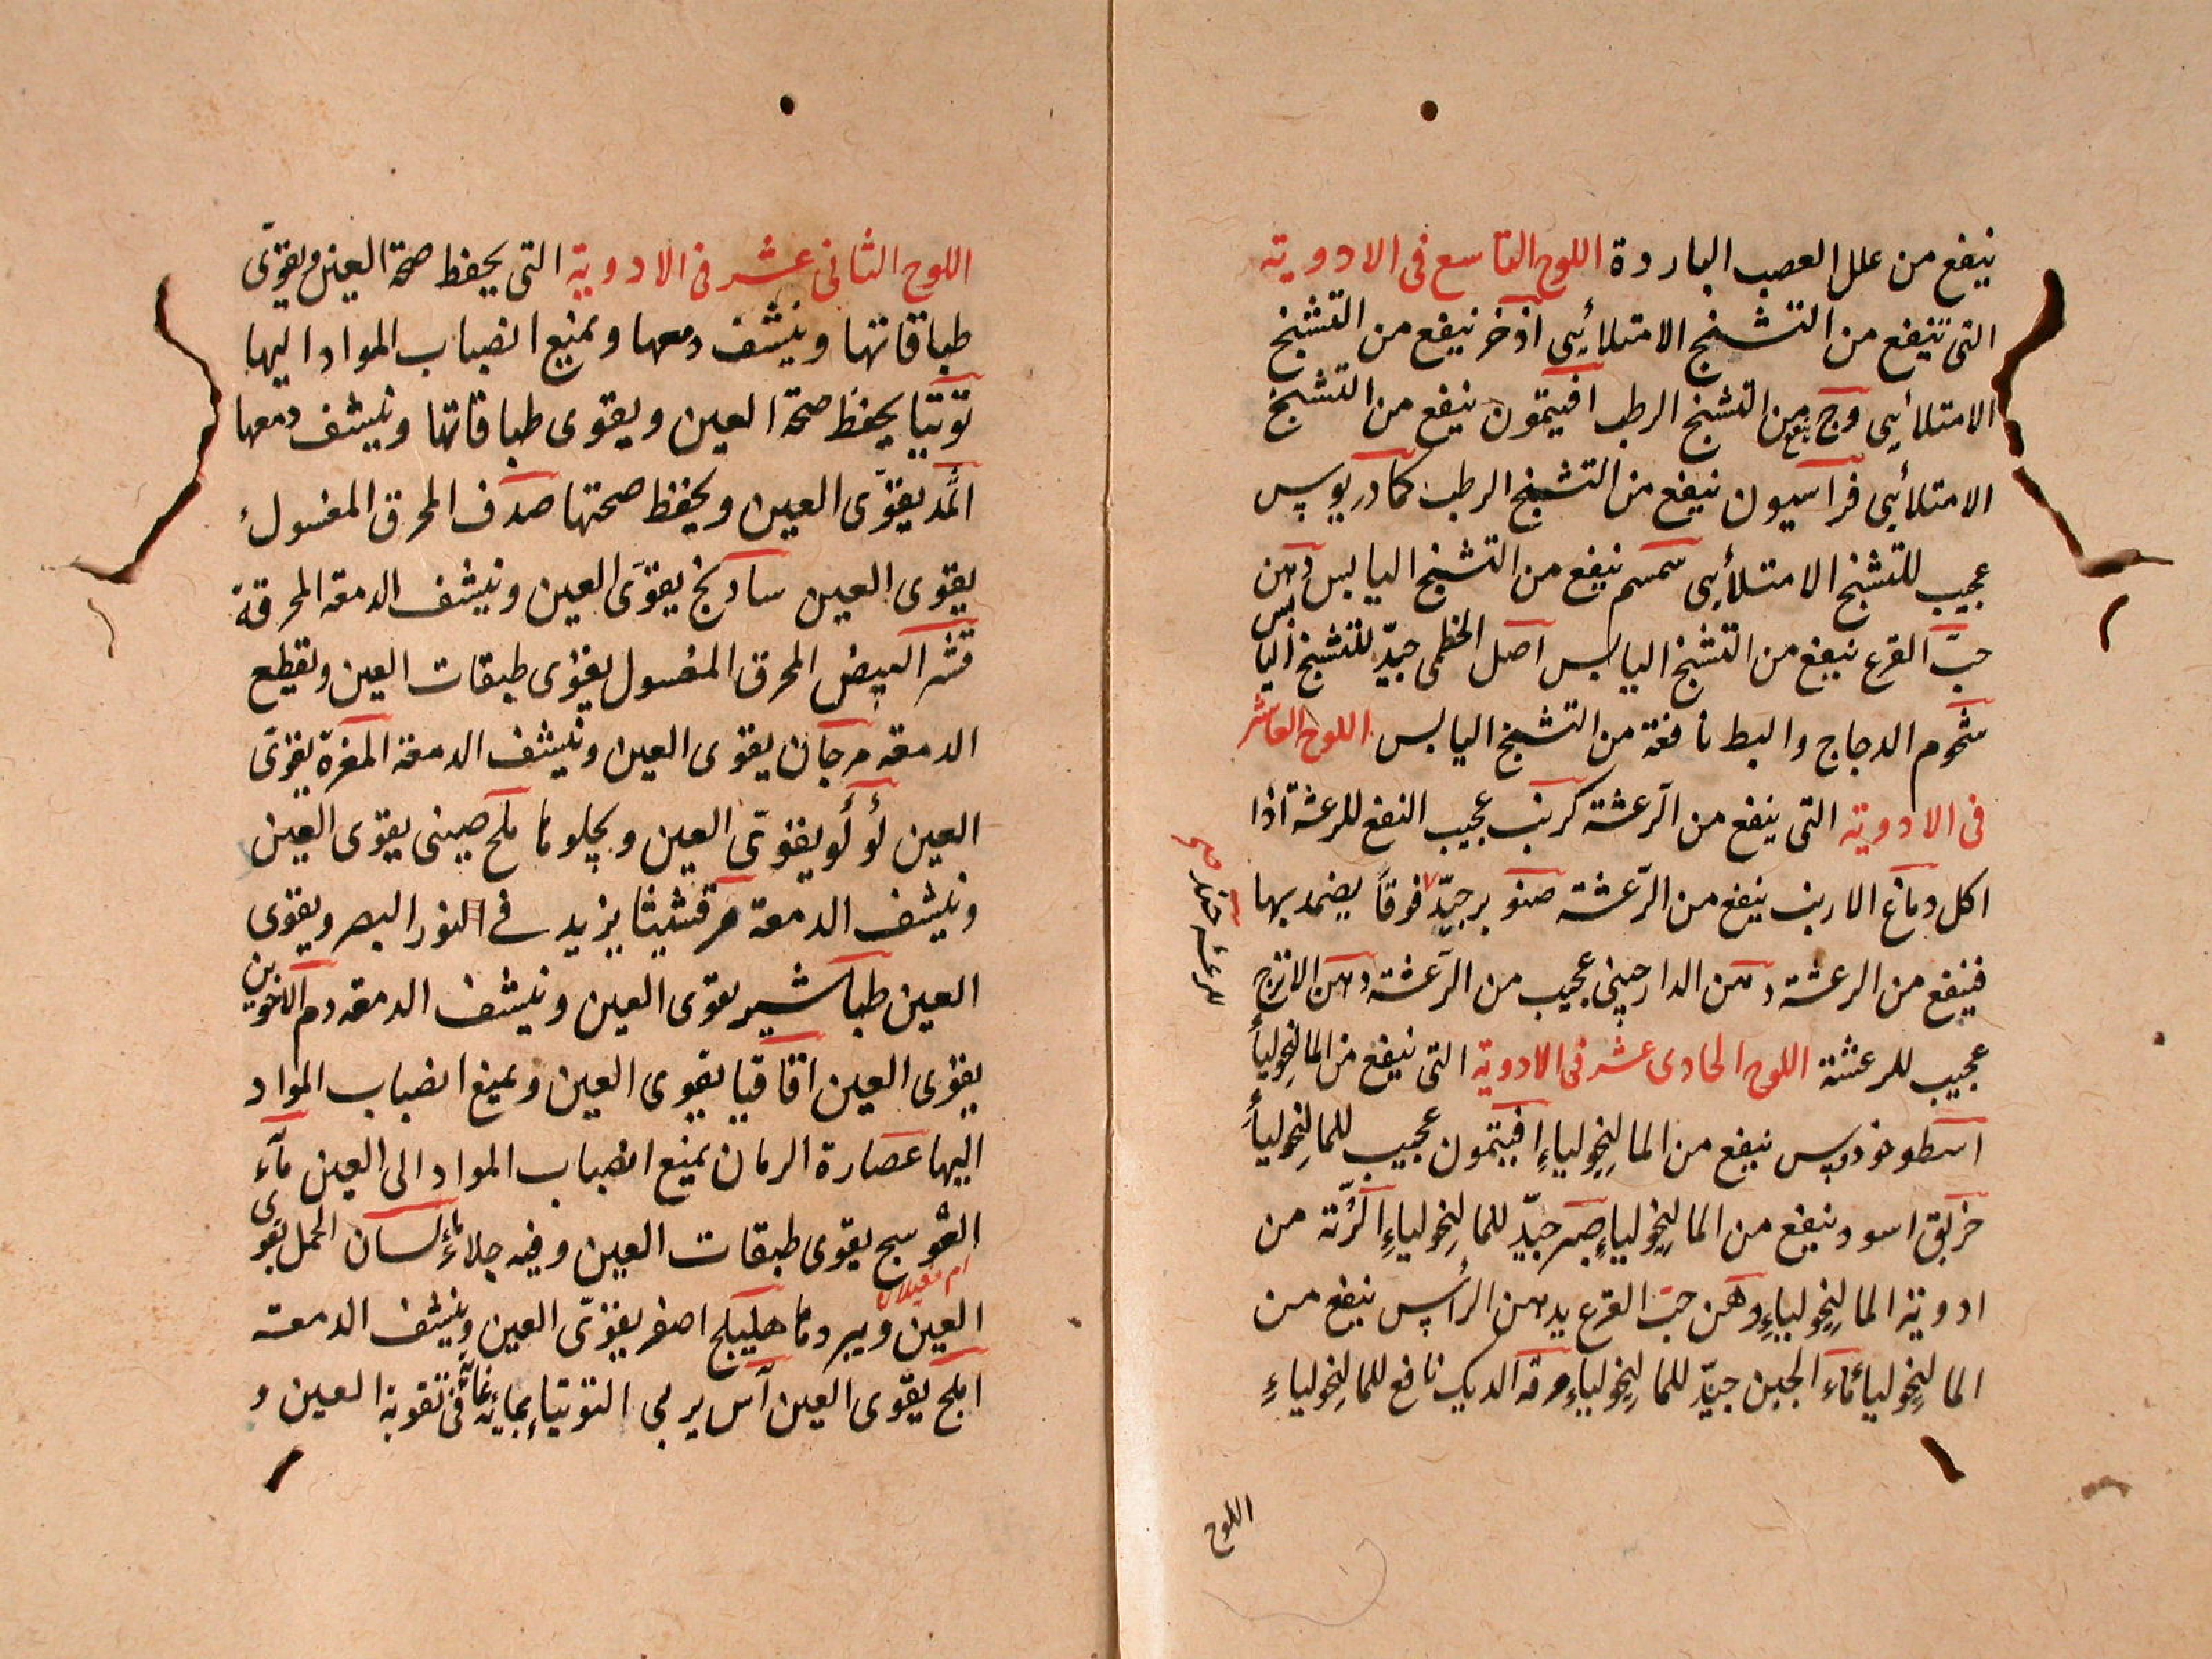 ينفع من علل العصب الباردة اللوح التاسع فى الادوية
التى تنفع من التشنج الامتلائى اذخر ينفع من التشنج
الامتلائى وج ينفع من التشنج الرطب افتيمون ينفع من التشنج
الامتلائى فراسيون ينفع من التشنج الرطب كمادريوس
عجيب للتشنج الامتلائى سمسم ينفع من التشنج اليابس دهن
حبّ القرع ينفع من التشنج اليابس اصل الخطمى جيّد للتشنج اليابس
شحوم الدجاج والبط نافعة من التشنج اليابس اللوح العاشر
فى الادوية التى ينفع من الرّعشة كرنب عجيب النفع للرعشة اذا
اكل دماغ الارنب ينفع من الرّعشة صنوبر جيّد فوقاً يضمد بها
فينفع من الرعشة دهن الدارچينى عجيب من الرّعشة دهن الاترج
عجيب للرعشة اللوح الحادى عشر فى الادوية التى ينفع من المالنِخولياء
اسطوخودوس ينفع من المالنِخولياءِ افيتمون عجيب للمالنِخولياءَ
خربق اسود ينفع من المالنِخولياءِ صبر جيّد للمالنِخولياءِ الكرّنة من
ادوية المالنِخولياءِ دهن حبّ القرع يدهن الرأس ينفع من
المالنِخولياء ماء الجبن جيّد للمالنِخولياءِ مرقة الديك نافع للمالنِخولياءِ
للرعشة
اللوح
اللوح الثانى عشر فى الادوية التى يحفظ صحة العين ويقوّى
طباقاتها وينشف دمعها ويمنع انصباب المواد اليها
توتيا يحفظ صحة العين ويقوى طباقاتها وينشف دمعها
اثمد يقوّى العين ويحفظ صحتها صدف المحرق المغسول
يقوى العين سادنج يقوّى العين وينشف الدمعه المحرقة
قشر البيض المحرق المغسول يقوى طبقات العين ويقطع
الدمعه مرجان يقوى العين وينشف الدمعة المغرة يقوّى
العين لؤلؤ يقوّى العين ويجلوها ملح صينى يقوى العين
وينشف الدمعة مرقشيثا يزيد فى النور البصر ويقوى
العين طباشير يقوى العين وينشف الدمعه دم الاخوين
يقوى العين اقاقيا يقوى العين ويمنع انصباب المواد
اليها عصارة الرمان يمنع انصباب المواد الى العين مآء
العوسج يقوى طبقات العين وفيه جلاء ماء لسان الحمل يقوى
ام غيلان
العين ويبردها هليلج اصفر يقوّى العين وينشف الدمعة
املج يقوى العين آس يربى التوتياء بمائه غاية فى تقوية العين و